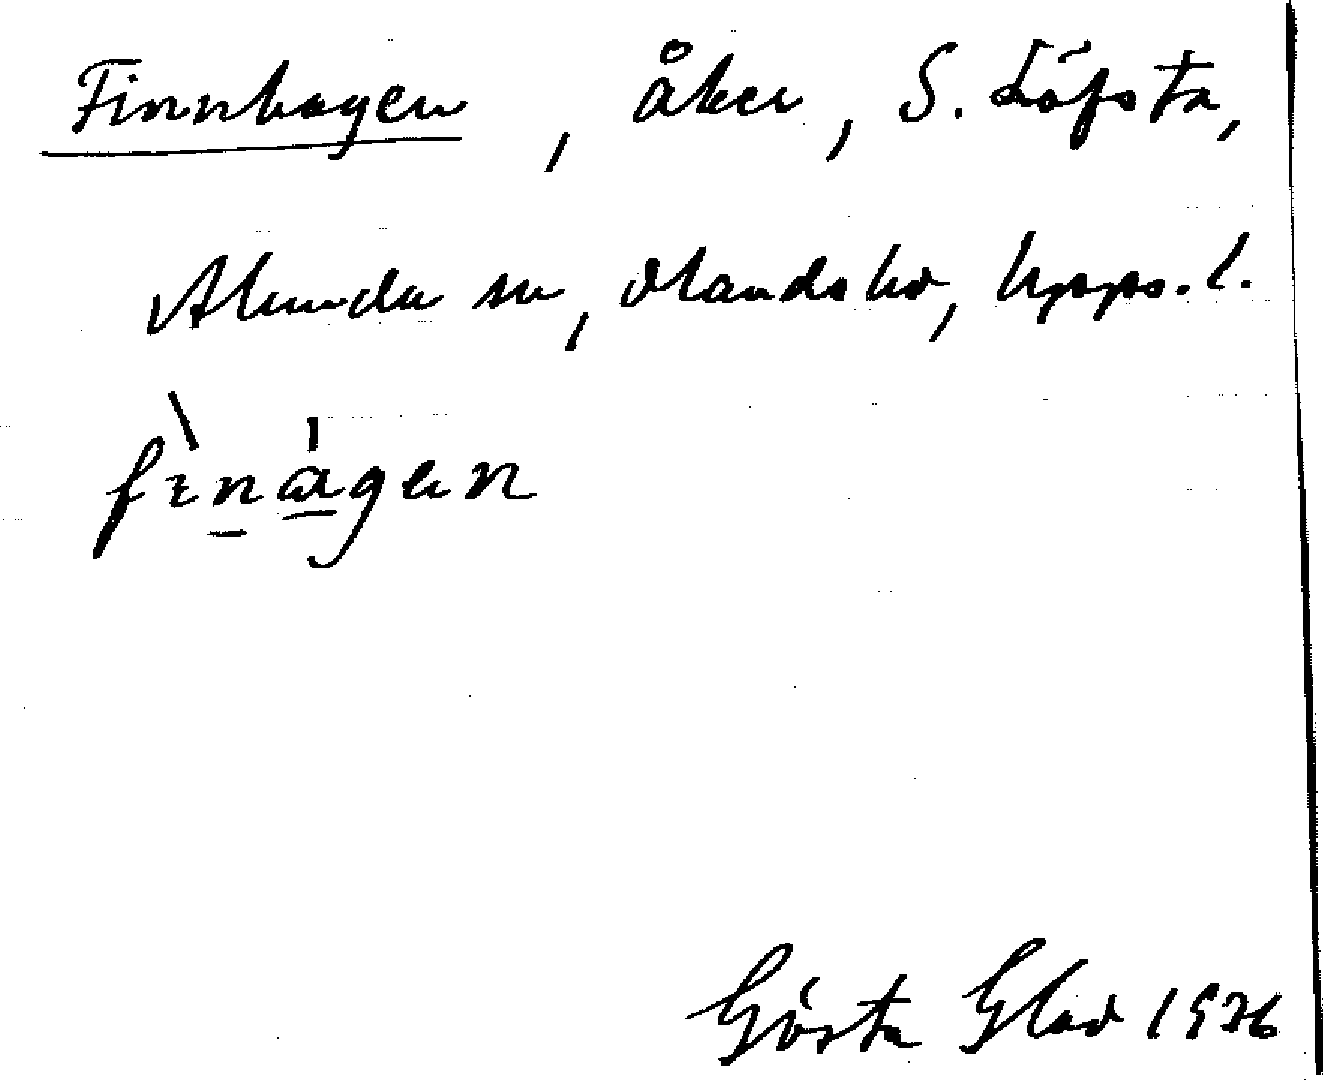 Finnhagen, åker, S. Löfsta,
Alunda sn, Olands hd, Upps. l.
Gösta Glad 1936